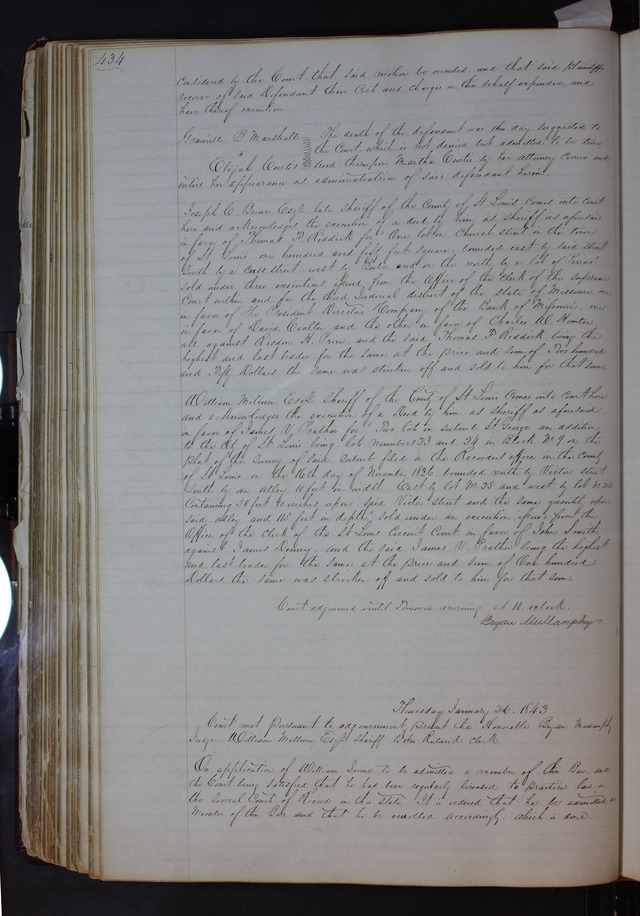 434
considered by the Court that said motion be overruled, and that said plaintiffs
recover of said Defendant their Costs and charges in this behalf expended, and
have thereof execution
Granville P. Marshall
The death of the defendant was this day suggested to
the Court, which is not denied but admitted to be true
Elijah Curtis
and thereupon Martha Curtis by her Attorney Comes and
enters her appearance as administratrix of said defendant herein.
Joseph C. Brown Esqr. late Sheriff of the County of St Louis Comes into court
here and acknowledges the execution of a deed by him as sheriff as aforesaid
in favor of Thomas F. Riddick for One lot on Church street in the town
of St. Louis one hundred and fifty feet square, bounded east by said street
South by a cross street, west by and on the north by a lot of
sold under three executions issued from the Office of the Clerk of the Supreme
Court within and for the third Judicial district of the State of Missouri one
in favor of The President Directors Company of the Bank of Missouri, one
in favor of David Coalter and the other in favor of Charles W. Hunter
all against Risdon H. Price and the said Thomas F. Riddick being the
highest and last bidder for the same at the price and sum of Two hundred
and Fifty Dollars the same was stricken off and sold to him for that sum.
William Milburn Esqr. Sheriff of the County of St Louis Comes into court here
and acknowledges the execution of a Deed by him as sheriff as aforesaid
in favor of James V. Prather for Two lots in suburb St George an addition
to the City of St. Louis being lots numbers 23 and 24 in Block No 9 on the
plat of the survey of said suburb filed in the Recorders office in the County
of St Louis on the 16th day of November 1836, bounded north by Victor street
South by an alley 10 feet in width East by lot No 25 and west by lot No 22
Containing 50 feet 10 inches upon said Victor street and the same quantity upon
said alley and 118 feet in depth, sold under an execution issued from the
Office of the Clerk of the St Louis Circuit Court in favor of John Smith
against James Denney, and the said James V. Prather being the highest
and last bidder for the same at the price and sum of One hundred
Dollars the same was stricken off and sold to him for that sum.
Court adjourned until Tomorrow morning at 10. oclock.
Bryan Mullanphy
Thursday January 26. 1843
Court met pursuant to adjournment present the Honorable Bryan Mullanphy
Judge. William Milburn Esqr. Sheriff John Ruland clerk
On application of William to be admitted a member of this Bar, and
the Court being satisfied that he has been regularly licensed to practice law in
the several Courts of Record in this State. It is ordered that he be admitted a
Member of this Bar and that he be enrolled accordingly, which is done.